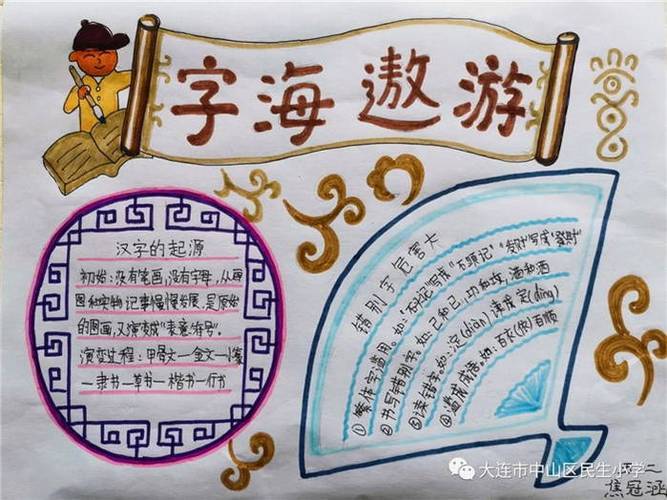 字海遨游
汉字的起源
初始：没有笔画，没有字母，从用
图和实物记事慢慢发展，是原始
的图画，又演变成"表意符号"。
演变过程：甲骨文一金文一小篆
一隶书一草书一楷书一行书
错别字危害大
①繁体字滥用。如：
②书写错别字。如：己和已，功和攻，洒和酒
③读错字。如：淀(diàn)读成定(dìng)
④滥改成语。如：百依百顺
大连市中山区民生小学
焦冠涵